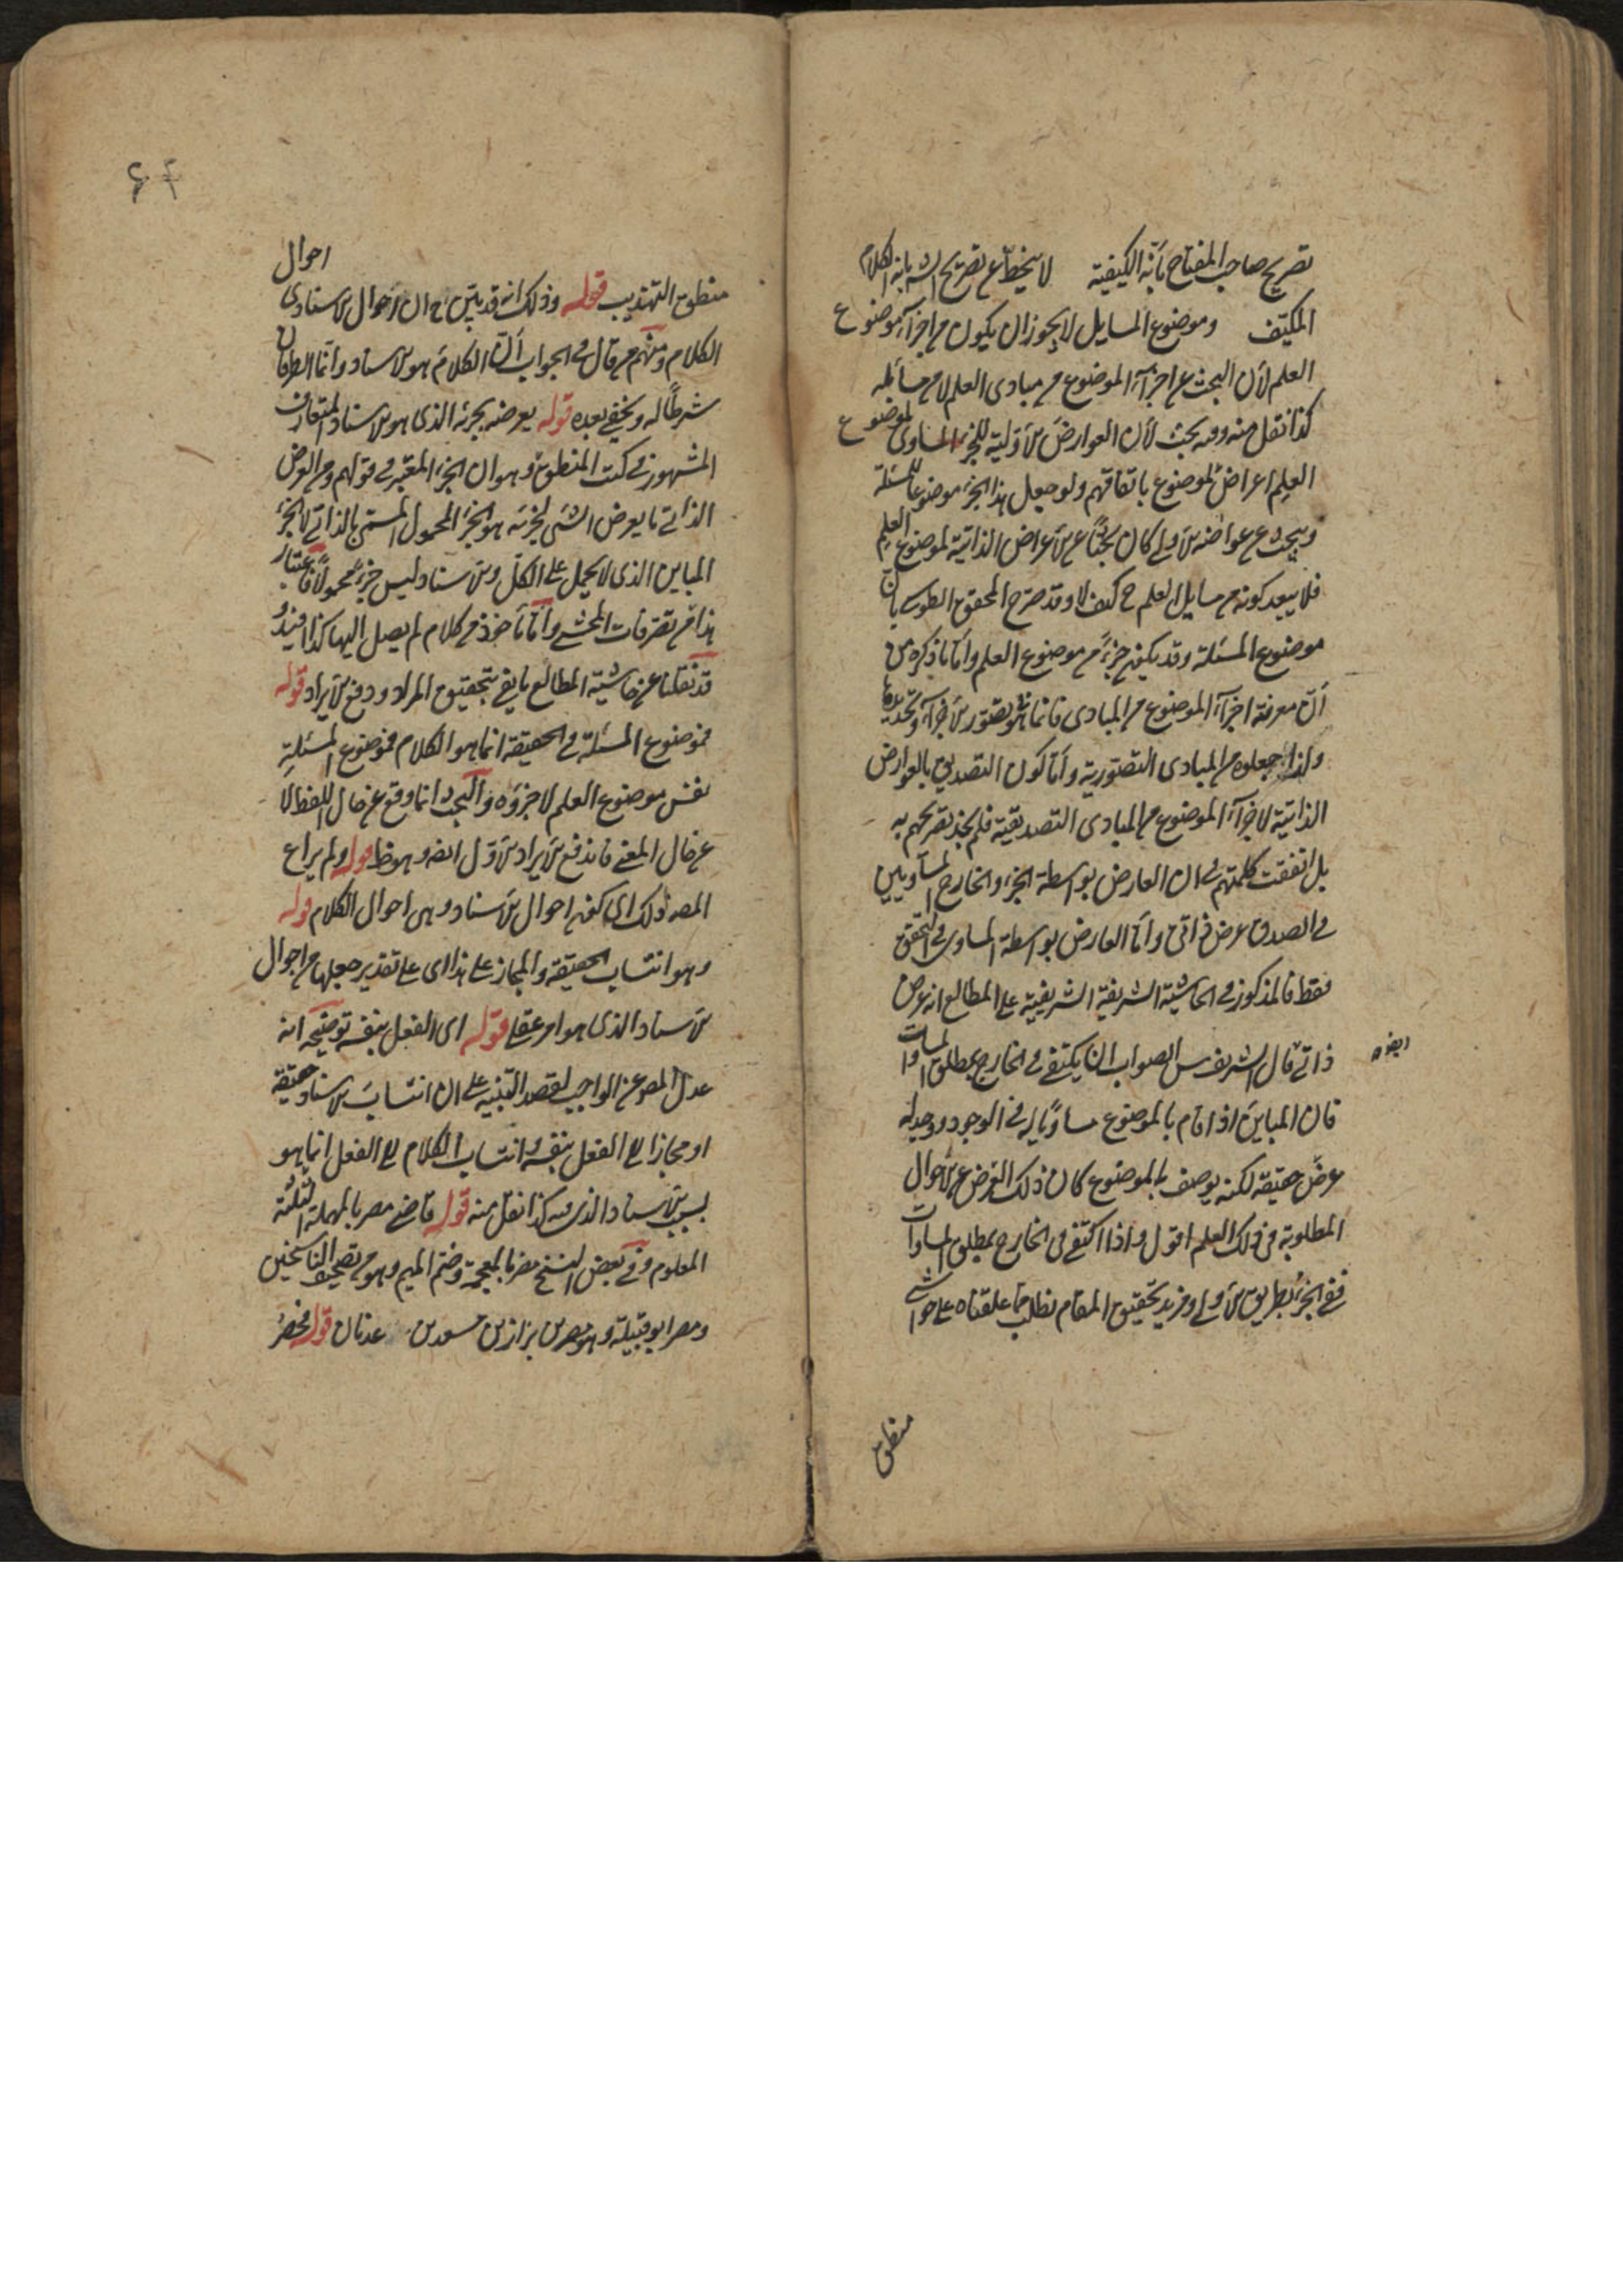 تصريح صاحب المفتاح بأنه الكيفية لا ينحط عن تصريح الش بانه الكلام
المكيّف وموضوع المسايل لا يجوز ان يكون من اجزآء موضوع
العلم لأن البحث عن اجزآء الموضوع من مبادى العلم لا من مسائله
كذا نقل منه وفيه بحث لأن العوارض الأولية للجزء المساوى لموضوع
العلم اعراض للموضوع باتفاقهم ولو جعل هذا الجزء موضوعا للمسئلة
ويبحث عن عوارضه الأولى كان بحثًا عن الأعراض الذاتية لموضوع العلم
فلا يبعد كونه من مسايل العلم ح كيف لا وقد صرح المحقق الطوسى بان
موضوع المسئلة وقد يكون جزءً من موضوع العلم وأما ما ذكره من
أنّ معرفة اجزآء الموضوع من المبادى فانما هو تصور الأجزآء وتحديدها
ولذا جعلوه من المبادى التصورية وأما كون التصديق بالعوارض
الذاتية لاجزآء الموضوع من المبادى التصديقية فلم نجد تصريحهم به
بل اتفقت كلمتهم على ان العارض بواسطة الجزء والخارج المساويين
فى الصدق عرض ذاتى وأما العارض بواسطة المساوى فى التحقق
فقط فالمذكور فى الحاشية الشريفة الشريفية على المطالع انه عرض
ذاتى ايضا قال الشريف س الصواب ان يكتفى فى الخارج بمطلق المساوات
فان المباين اذا قام بالموضوع مساويًا له فى الوجود ووجد له
عرض حقيقة لكنه يوصف به الموضوع كان ذلك العرض من الأحوال
المطلوبة فى ذلك العلم اقول واذا اكتفى فى الخارج بمطلق المساوات
ففى الجزء بطريق الأولى ومزيد تحقيق المقام يطلب مما علقناه على حواشى
منطق
احوال
منطق التهذيب قوله وذلك انه قد تبين ح ان الأحوال الأسنادى
الكلام ومنهم من قال فى الجواب أنّ الكلام هو الأسناد وأنما الطرفان
شرطًا له ويخفى بعده قوله يعرضه بجزئه الذى هو الأسناد المتعارف
المشهور فى كتب المنطق وهو ان الجزء المعتبر فى قولهم ومن العرض
الذاتى ما يعرض الشىء لجزئه هو الجزء المحمول المسمى بالذاتى لا الجزء
المباين الذى لا يحمل على الكل والأسناد ليس جزءً محمولًا فاعتبار
هذا من تصرفات المحشى وأما المأخوذ من كلام لم يصل اليها كذا افيد
قد نقلنا عن حاشية المطالع ما يفى بتحقيق المراد ودفع الأيراد قوله
فموضوع المسئلة فى الحقيقة انما هو الكلام فموضوع المسئلة
نفس موضوع العلم لا جزؤه والبحث انما وقع عن حال اللفظ لا
عن حال المعنى فاندفع الأيراد الأول ايضا وهو ظ قوله ولم يراع
المصه ذلك اى كون احوال الأسناد وهى احوال الكلام قوله
وهو انتساب الحقيقة والمجاز على هذا اى على تقدير جعلها من احوال
الأسناد الذى هو امر عقلى قوله اى الفعل بنفسه توضيحه انه
عدل المص عن الواجب لقصد التنبيه على ان انتساب الأسناد حقيقة
او مجازا الى الفعل بنفسه وانتساب الكلام الى الفعل انما هو
بسبب الأسناد الذى فيه كذا نقل منه قوله قاضى مصر بالمهملة البلدة
المعلوم وفى بعض النسخ مضر بالمعجمة وضم الميم وهو من تصحيف الناسخين
ومضر ابو قبيلة وهو مضر بن نزار بن معد بن عدنان قوله فحضر